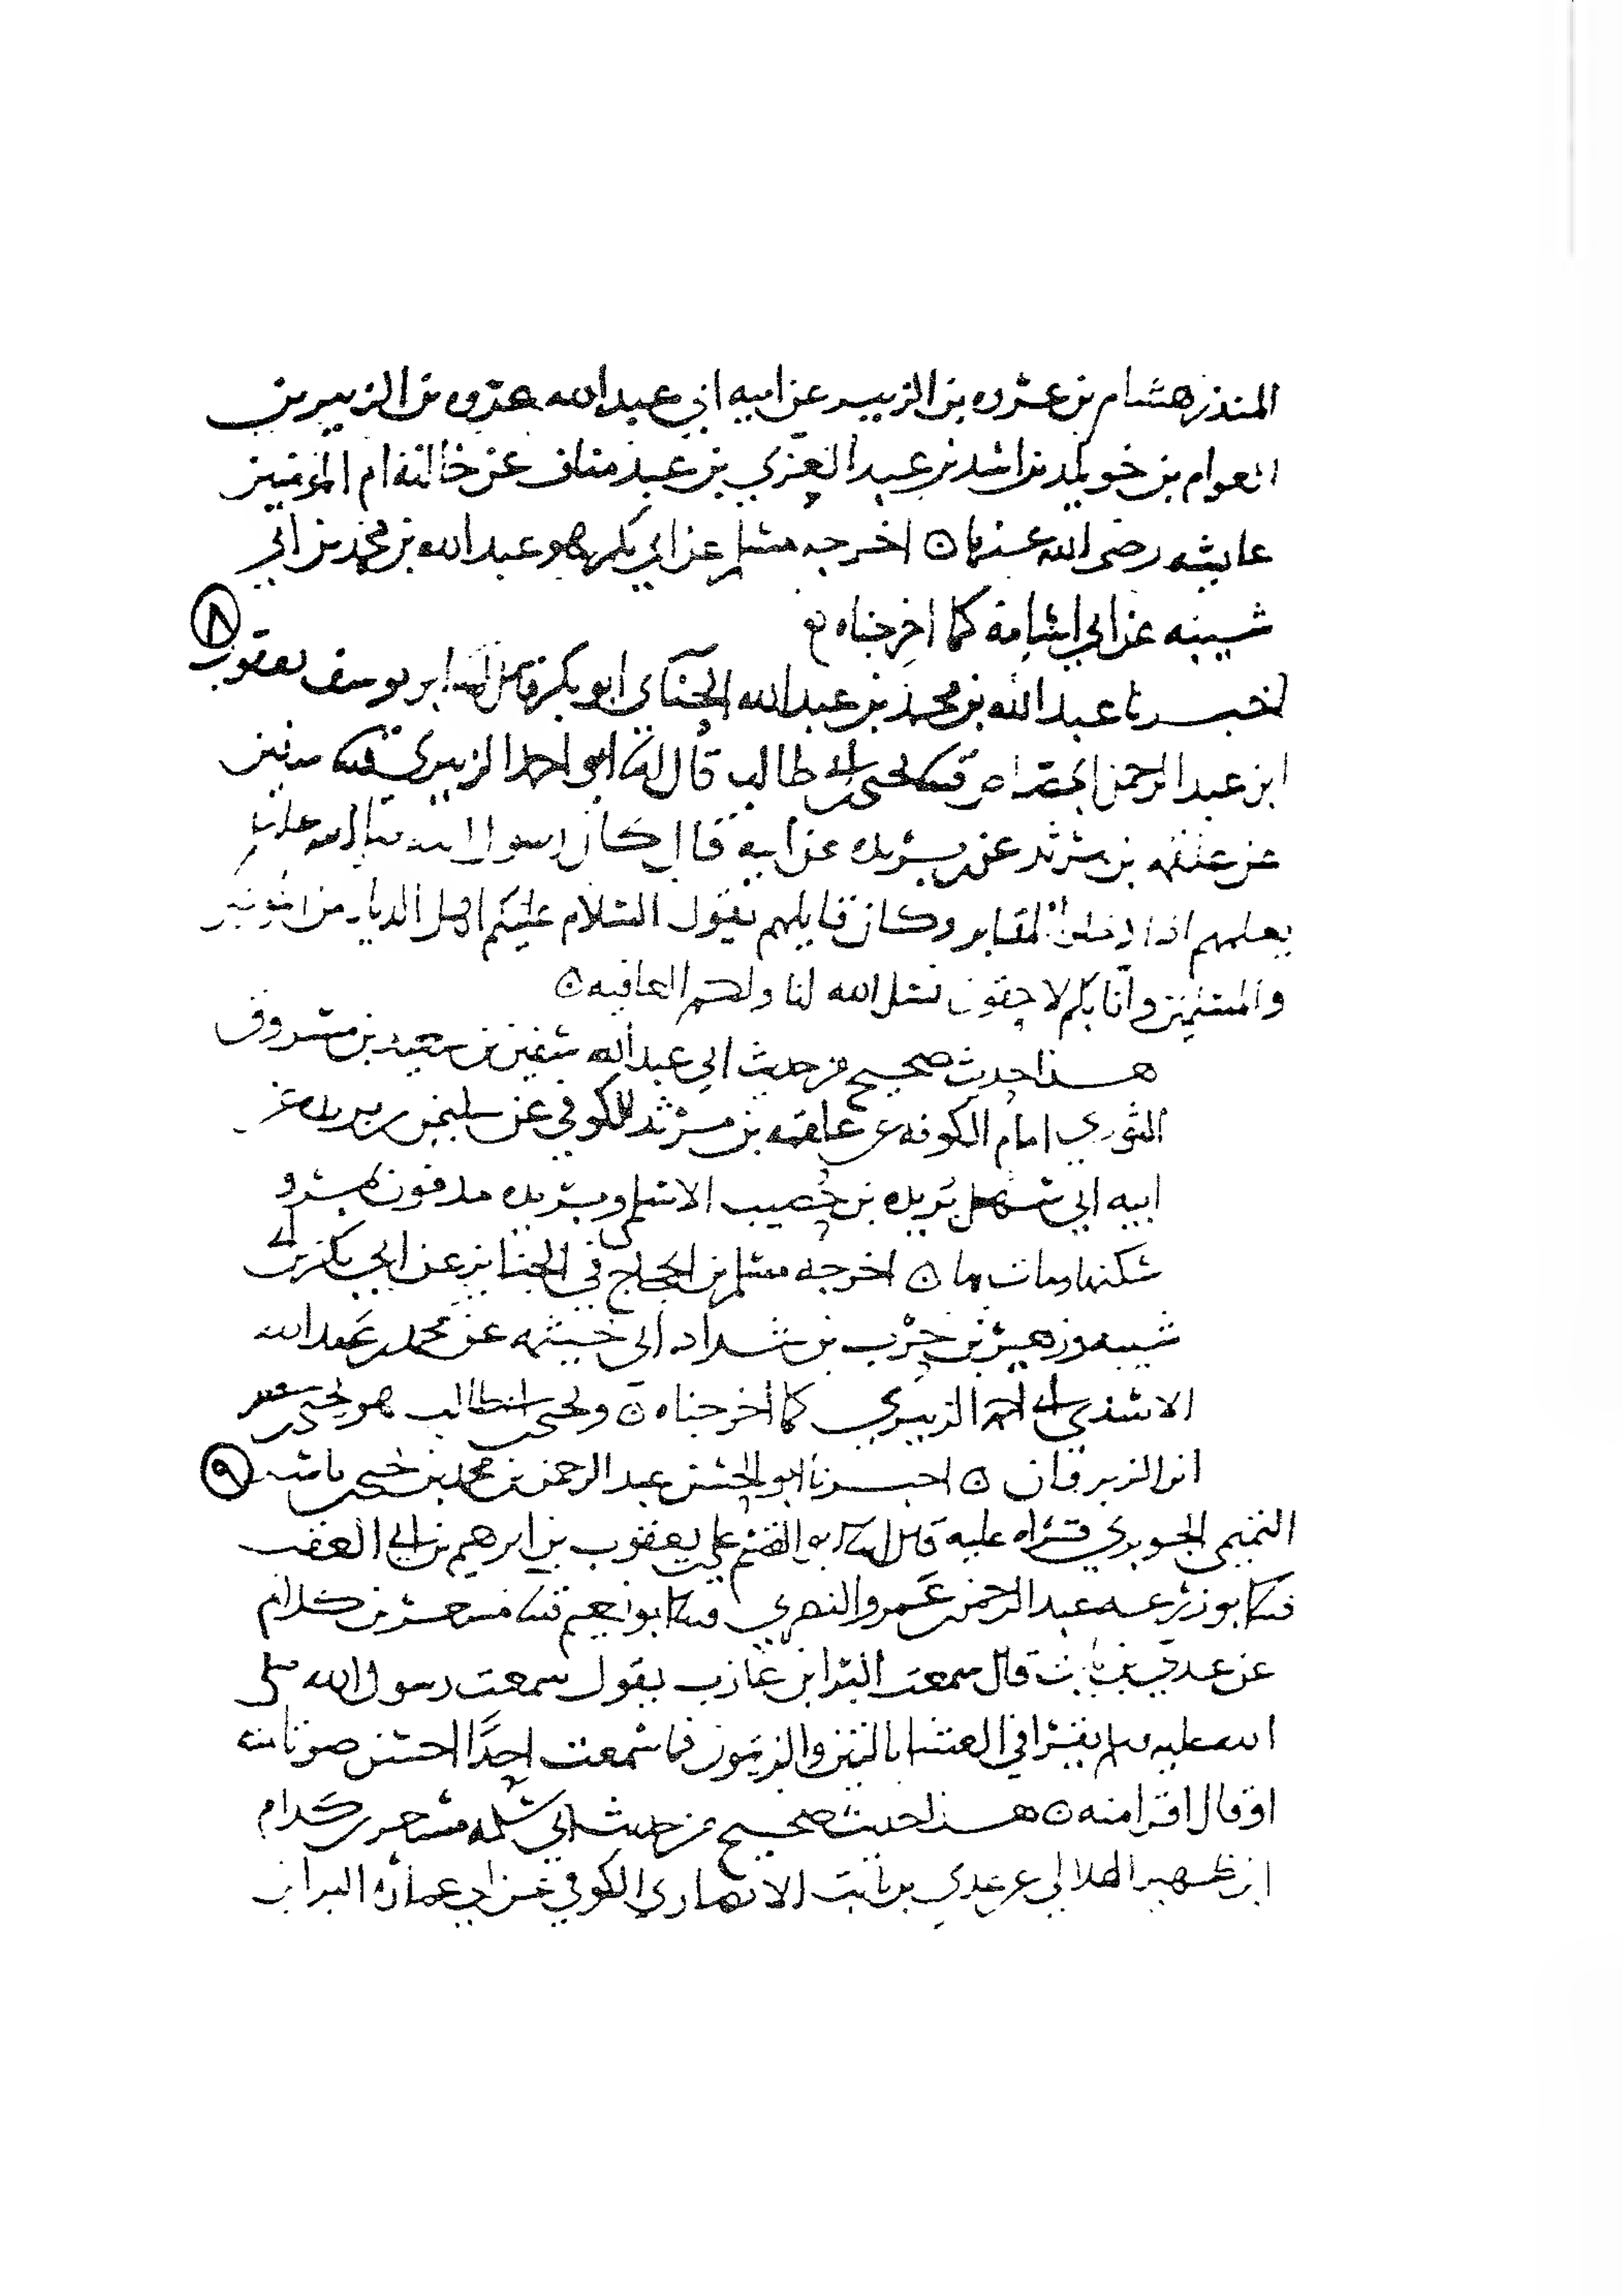 المنذر هشام بن عروه بن الزبير عن ابيه ابي عبد الله عروه بن الزبير بن
العوام بن خويلد بن اسد بن عبد العزي بن عبد مناف عن خالته ام المؤمنين
عايشه رضى الله عنها ن اخرجه مسلم عن ابي بكر هو عبد الله بن محمد بن ابي
شيبه عن ابي اسامة كما اخرجناه
٨
اخبرنا عبد الله بن محمد بن عبد الله الحنآي ابو بكر قال ابو يوسف يعقوب
ابن عبد الرحمن الجصاص يحيى بن ابي طالب قال ابو احمد الزبيري سفين
عن علقمه بن مرثد عن بريده عن ابيه قال كان رسول الله صلى الله عليه وسلم
يعلمهم اذا دخلوا المقابر وكان قايلهم يقول السلام عليكم اهل الديار من المؤمنين
والمسلمين وانا بكم لاحقون نسل الله لنا ولكم العافيه ن
هذا حديث صحيح من حديث ابي عبد الله سفين بن سعيد بن مسروق
الثوري امام الكوفه عن علقمه بن مرثد الكوفي عن سليمن بن بريده عن
ابيه ابي سهل بريده بن حصيب الاسلمي وبريده مدفون بمرو
سكنها ومات بها ن اخرجه مسلم بن الحجاج في الجنايز عن ابي بكر بن ابي
شيبه وزهير بن حرب بن شداد ابي خيثمه عن محمد بن عبد الله
الاسدي ابي احمد الزبيري كما اخرجناه ن ويحيى بن ابي طالب هو يحيى بن جعفر
ابن الزبرقان ن اخبرنا ابو الحسن عبد الرحمن بن محمد بن يحيى بن ياسر
٩
التميمي الجوبري قراه عليه قال ابو القسم علي بن يعقوب بن ابرهيم بن ابي العقب
ابو زرعه عبد الرحمن بن عمرو النصري ابو نعيم مسعر بن كدام
عن عدي بن ثابت قال سمعت البرا بن عازب يقول سمعت رسول الله صلى
الله عليه وسلم يقرا في العشا بالتين والزيتون فما سمعت احدًا احسن صوتا منه
او قال اقرا منه ن هذا حديث صحيح من حديث ابي سلمه مسعر بن كدام
ابن ظهير الهلالي عن عدي بن ثابت الانصاري الكوفي عن ابي عماره البرا بن